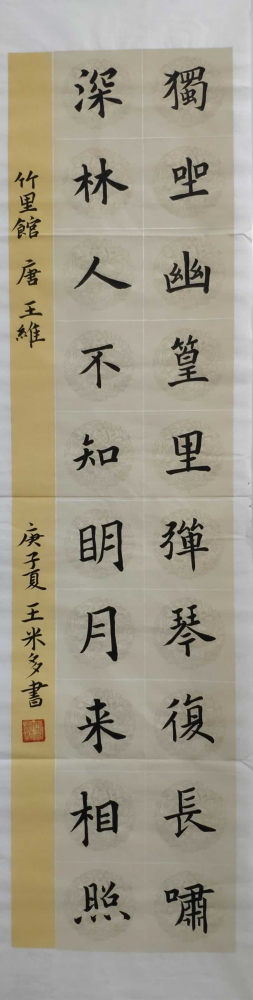 獨坐幽篁里彈琴復長嘯
深林人不知明月来相照
竹里館 唐 王維
庚子夏 王米多書